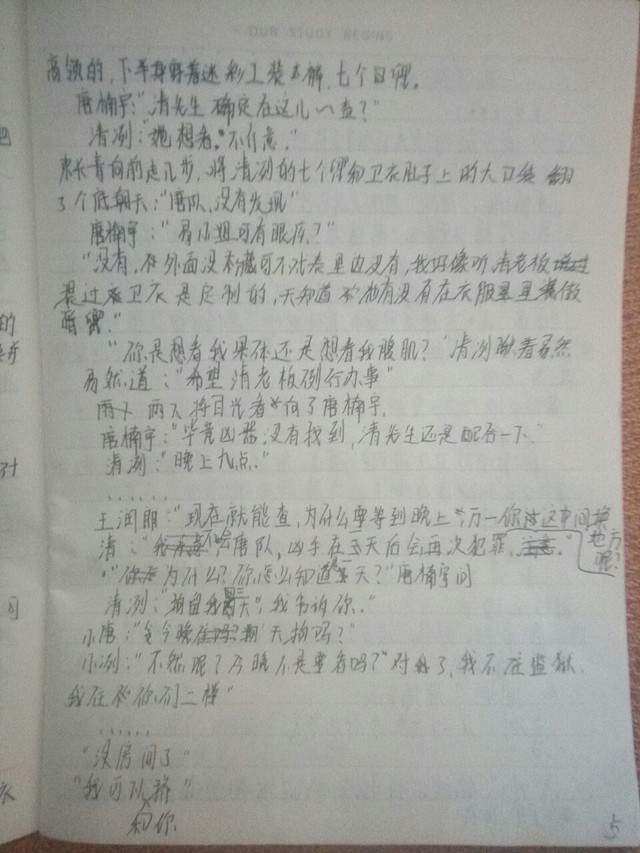 OUR STUDY BEGINS
高领的,下半身穿着迷彩工装 七个口
唐楠宇:“清先生确定在这儿查?”
清冽:“她想看。”不介意。”
东长青向前走几步,将清冽的七个 卫衣肚子上的大口袋翻
了个底朝天:“唐队,没有发现”
唐楠宇:“易小姐可有眼疾?”
“没有,在外面没有藏可不代表里边没有,我好像听清老板
提过 卫衣是定制的,天知道 他有没有在衣服里 做
暗
“你是想看我果体还是想看我腹肌?”清冽瞅着易然
易然道:“希望清老板例行办事”
两人将目光看向了唐楠宇.
唐楠宇:“毕竟凶器没有找到,清先生还是配合一下.”
清冽:“晚上九点.”
......
王润朗:“现在就能查,为什么要等到晚上,万一你这中间换
地方呢?
清:“唐队,凶手在五天后会再次犯罪.”
“为什么?你怎么知道是五天?”唐楠宇问
清冽:“拘留我 天”,我告诉你.”
小唐:“今晚 天拘吗?”
小冽:“不然呢?今晚不是要看吗?”对了,我不在监狱.
我在和你们二楼”
......
“没房间了”
“我可以和你 ”
5